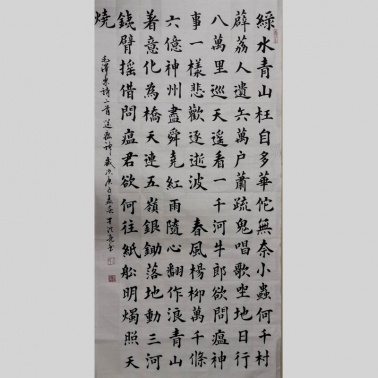 綠水青山枉自多華佗無奈小蟲何千村
薜荔人遺矢萬戶蕭疏鬼唱歌坐地日行
八萬里巡天遥看一千河牛郎欲問瘟神
事一樣悲歡逐逝波 春風楊柳萬千條
六億神州盡舜堯紅雨隨心翻作浪青山
著意化為橋天連五嶺銀鋤落地動三河
銕臂摇借問瘟君欲何往紙船明燭照天
燒
毛澤東詩二首送瘟神歲次庚子